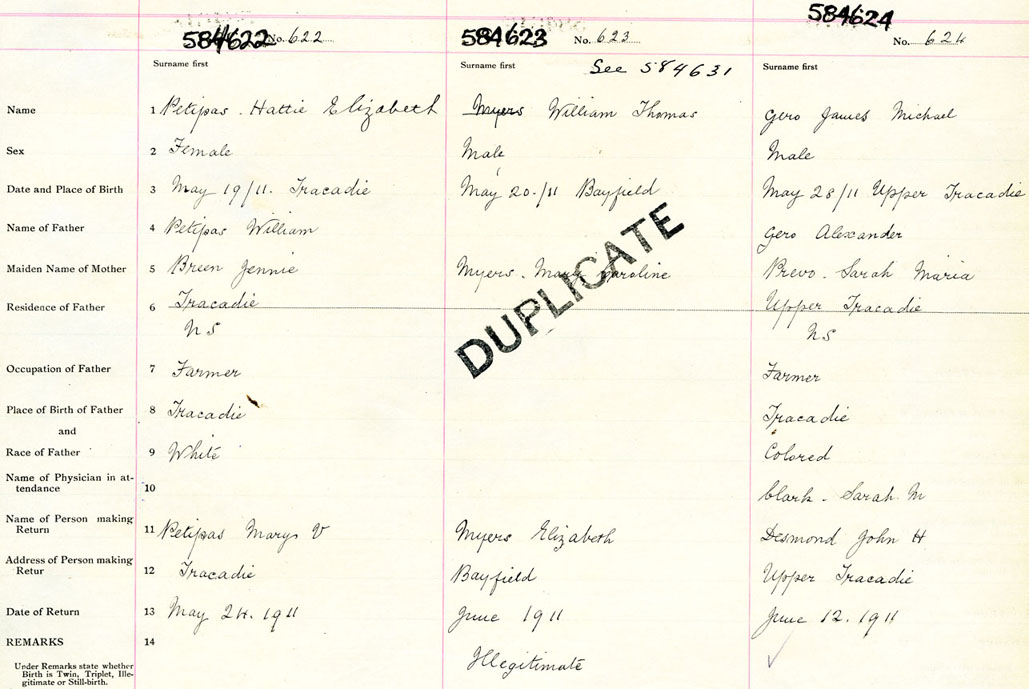 584622 No. 622 584623 No. 623 584624 No. 624
Surname first Surname first See 584631 Surname first
Name 1 Petipas. Hattie Elizabeth Myers William Thomas Gero James Michael
Sex 2 Female Male Male
Date and Place of Birth 3 May 19/11. Tracadie May 20-/11 Bayfield May 28/11 Upper Tracadie
Name of Father 4 Petipas William Gero Alexander
Maiden Name of Mother 5 Breen Jennie Myers. Mary Caroline Prevo. Sarah Maria
Residence of Father 6 Tracadie Upper Tracadie
NS NS
DUPLICATE
Occupation of Father 7 Farmer Farmer
Place of Birth of Father 8 Tracadie Tracadie
and
Race of Father 9 White Colored
Name of Physician in at-
tendance 10 Clark. Sarah M
Name of Person making
Return 11 Petipas Mary V Myers Elizabeth Desmond John H
Address of Person making
Retur 12 Tracadie Bayfield Upper Tracadie
Date of Return 13 May 24. 1911 June 1911 June 12. 1911
REMARKS 14
Illegitimate
Under Remarks state whether
Birth is Twin, Triplet, Ille-
gitimate or Still-birth.